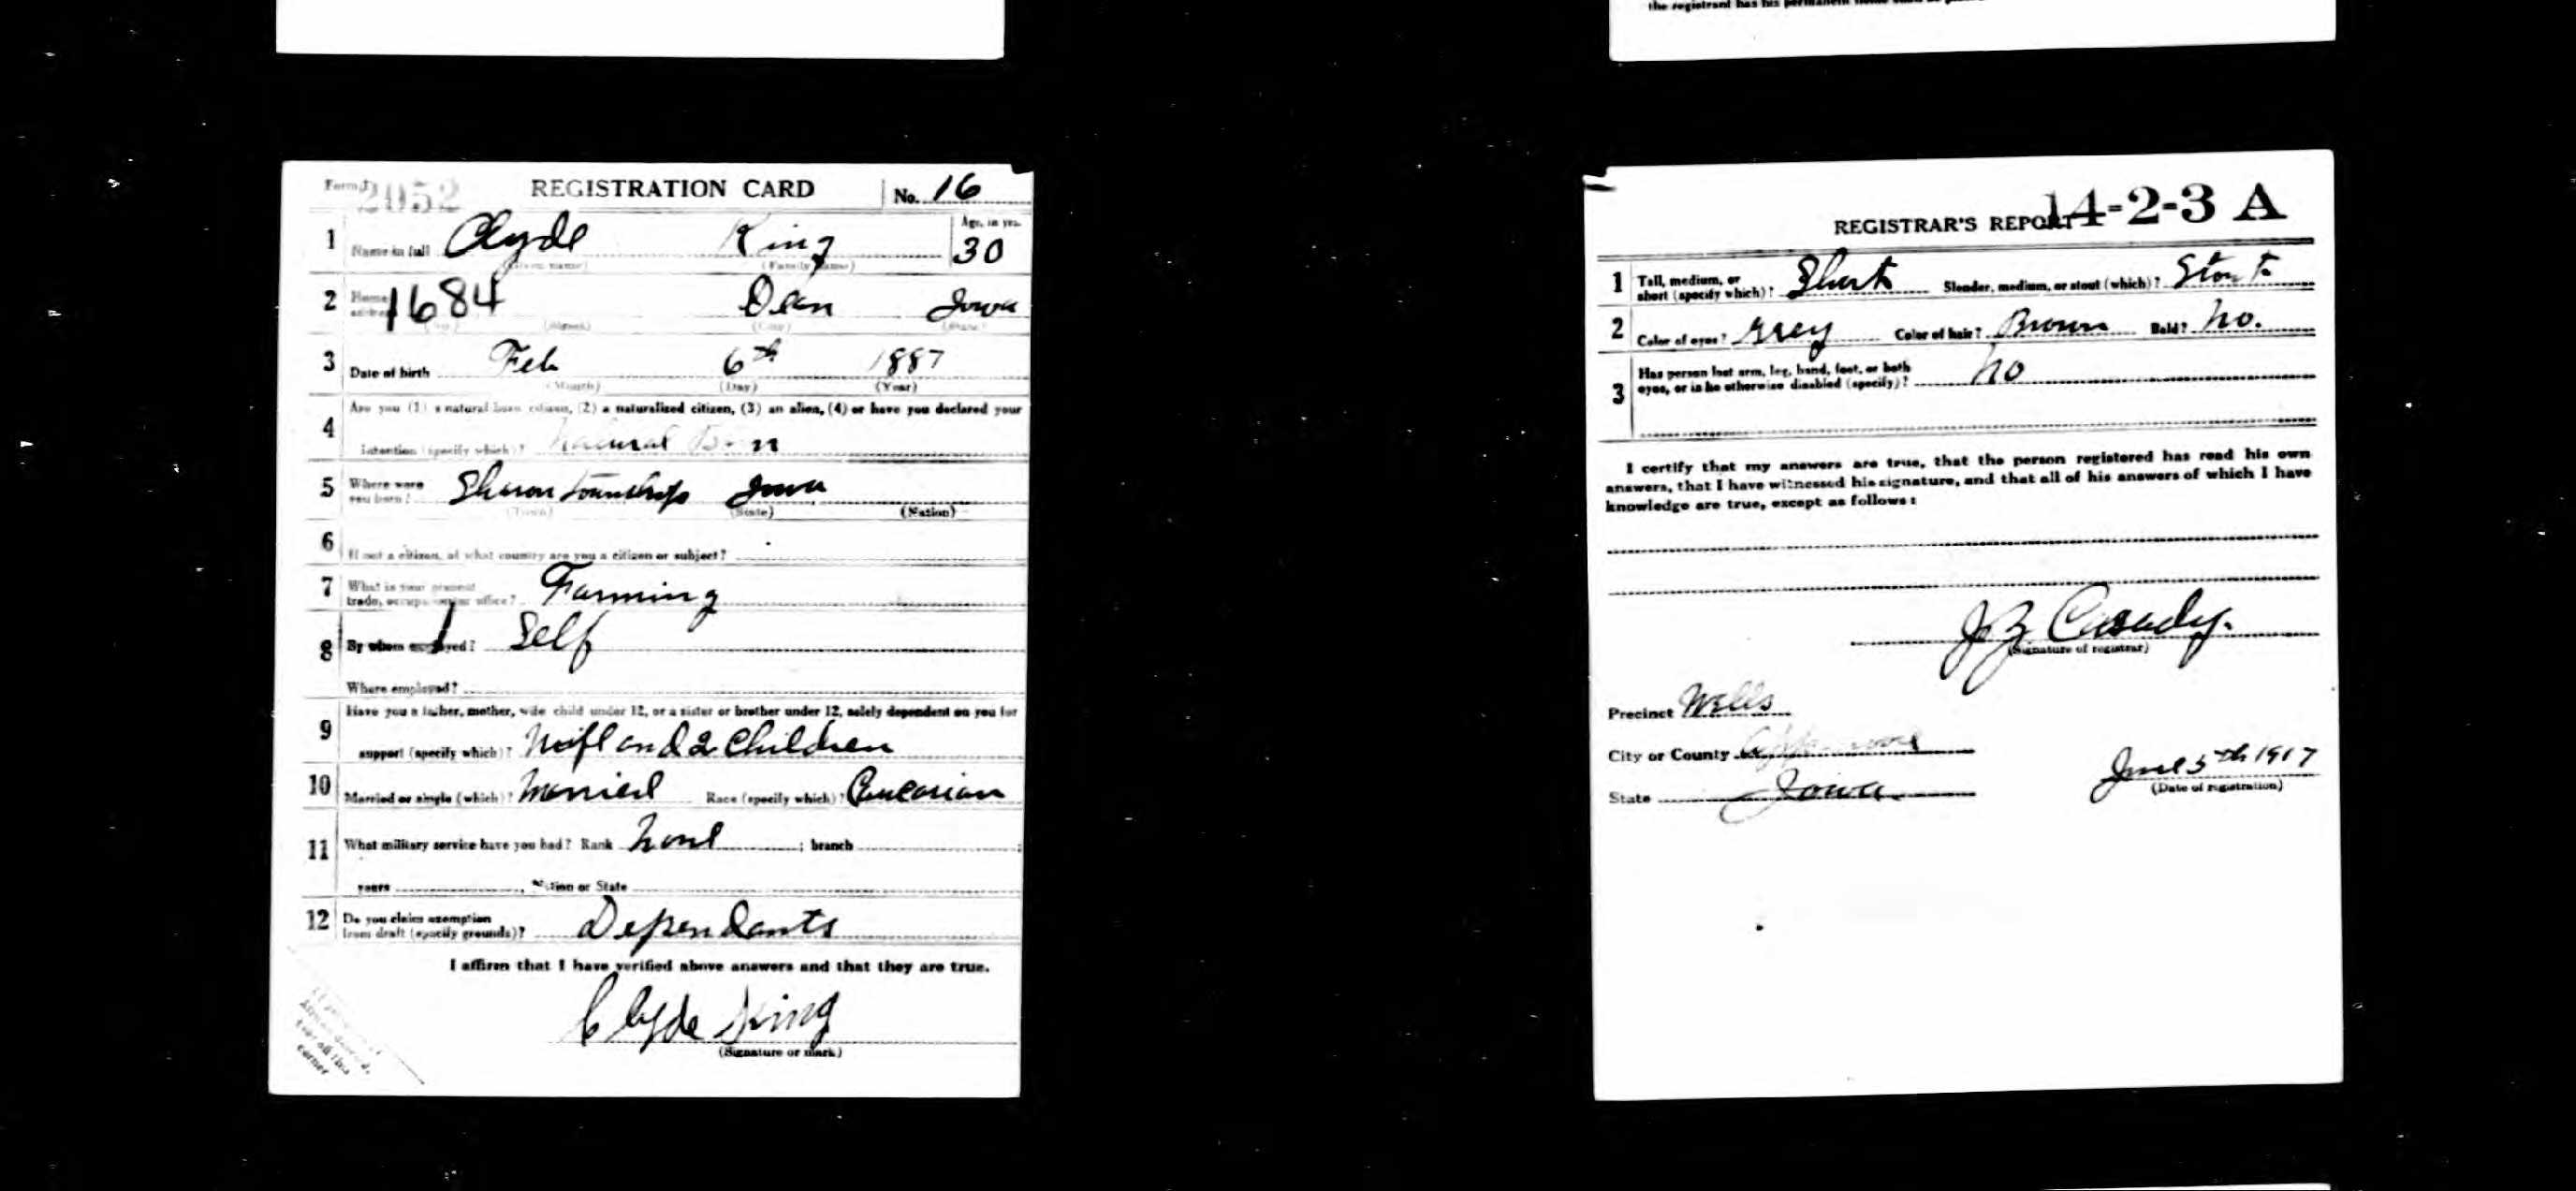 the registrant has his permanent home shall be
Form 1 2052 REGISTRATION CARD No. 16
1 Name in full Clyde King Age, in yrs. 30
(Given name) (Family name)
2 Home address 1684 Dean Iowa
(No.) (Street) (City) (State)
3 Date of birth Feb 6th 1887
(Month) (Day) (Year)
4 Are you (1) a natural born citizen, (2) a naturalized citizen, (3) an alien, (4) or have you declared your
intention (specify which)? Natural Born
5 Where were you born? Sharon Township Iowa
(Town) (State) (Nation)
6 If not a citizen, of what country are you a citizen or subject?
7 What is your present trade, occupation or office? Farming
8 By whom employed? Self
Where employed?
9 Have you a father, mother, wife child under 12, or a sister or brother under 12, solely dependent on you for
support (specify which)? Wife and 2 Children
10 Married or single (which)? Married Race (specify which)? Caucasian
11 What military service have you had? Rank None ; branch ;
years , Nation or State
12 Do you claim exemption from draft (specify grounds)? Dependants
I affirm that I have verified above answers and that they are true.
Clyde King
(Signature or mark)
tear off this
corner
14-2-3 A
REGISTRAR'S REPORT
1 Tall, medium, or short (specify which)? Short Slender, medium, or stout (which)? Stout
2 Color of eyes? Grey Color of hair? Brown Bald? No.
3 Has person lost arm, leg, hand, foot, or both
eyes, or is he otherwise disabled (specify)? No
I certify that my answers are true, that the person registered has read his own
answers, that I have witnessed his signature, and that all of his answers of which I have
knowledge are true, except as follows:
Casady.
(Signature of registrar)
Precinct Wells
City or County Appanoose
State Iowa
June 5th 1917
(Date of registration)